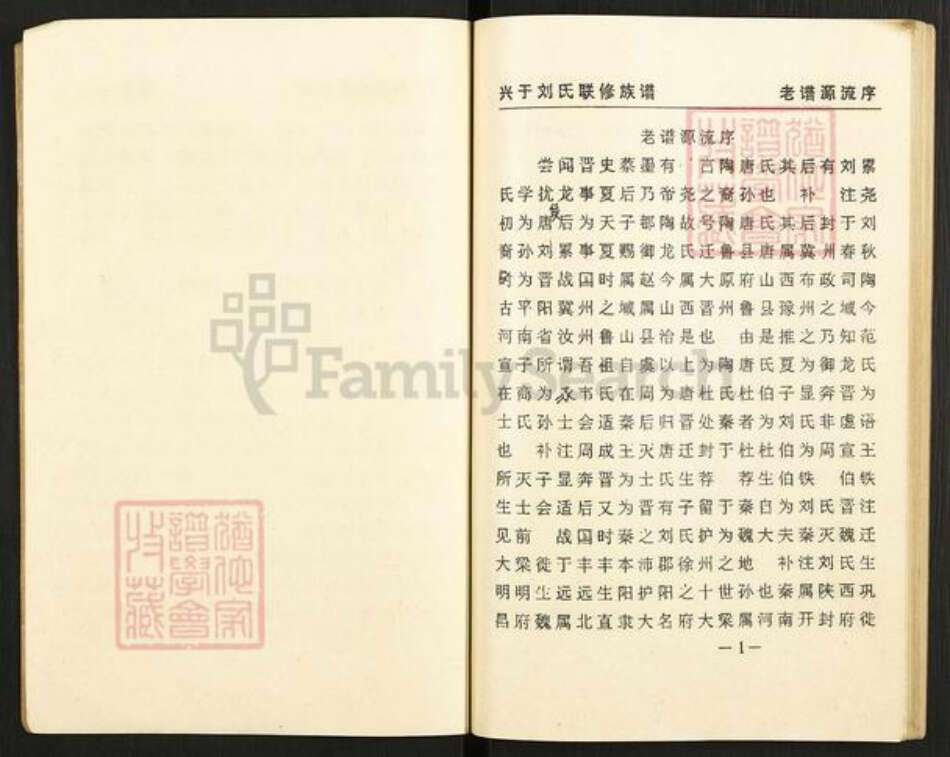 兴于刘氏联修族谱 老谱源流序
老谱源流序
尝闻晋史蔡墨有 言陶唐氏其后有刘累
氏学扰龙事夏后乃帝尧之裔孙也 补 注尧
初为唐后为天子都陶故号陶唐氏其后封于刘
裔孙刘累事夏赐御龙氏迁鲁县唐属冀州春秋
为晋战国时属赵今属大原府山西布政司陶
古平阳冀州之域属山西晋州鲁县豫州之域今
河南省汝州鲁山县治是也 由是推之乃知范
宣子所谓吾祖自虞以上为陶唐氏夏为御龙氏
在商为豕韦氏在周为唐杜氏杜伯子显奔晋为
士氏孙士会适秦后归晋处秦者为刘氏非虚语
也 补注周成王灭唐迁封于杜杜伯为周宣王
所灭子显奔晋为士氏生荐 荐生伯铁 伯铁
生士会适后又为晋有子留于秦自为刘氏晋注
见前 战国时秦之刘氏护为魏大夫秦灭魏迁
大梁徙于丰丰本沛郡徐州之地 补注刘氏生
明明生远远生阳护阳之十世孙也秦属陕西巩
昌府魏属北直隶大名府大梁属河南开封府徙
—1—
FamilySearch